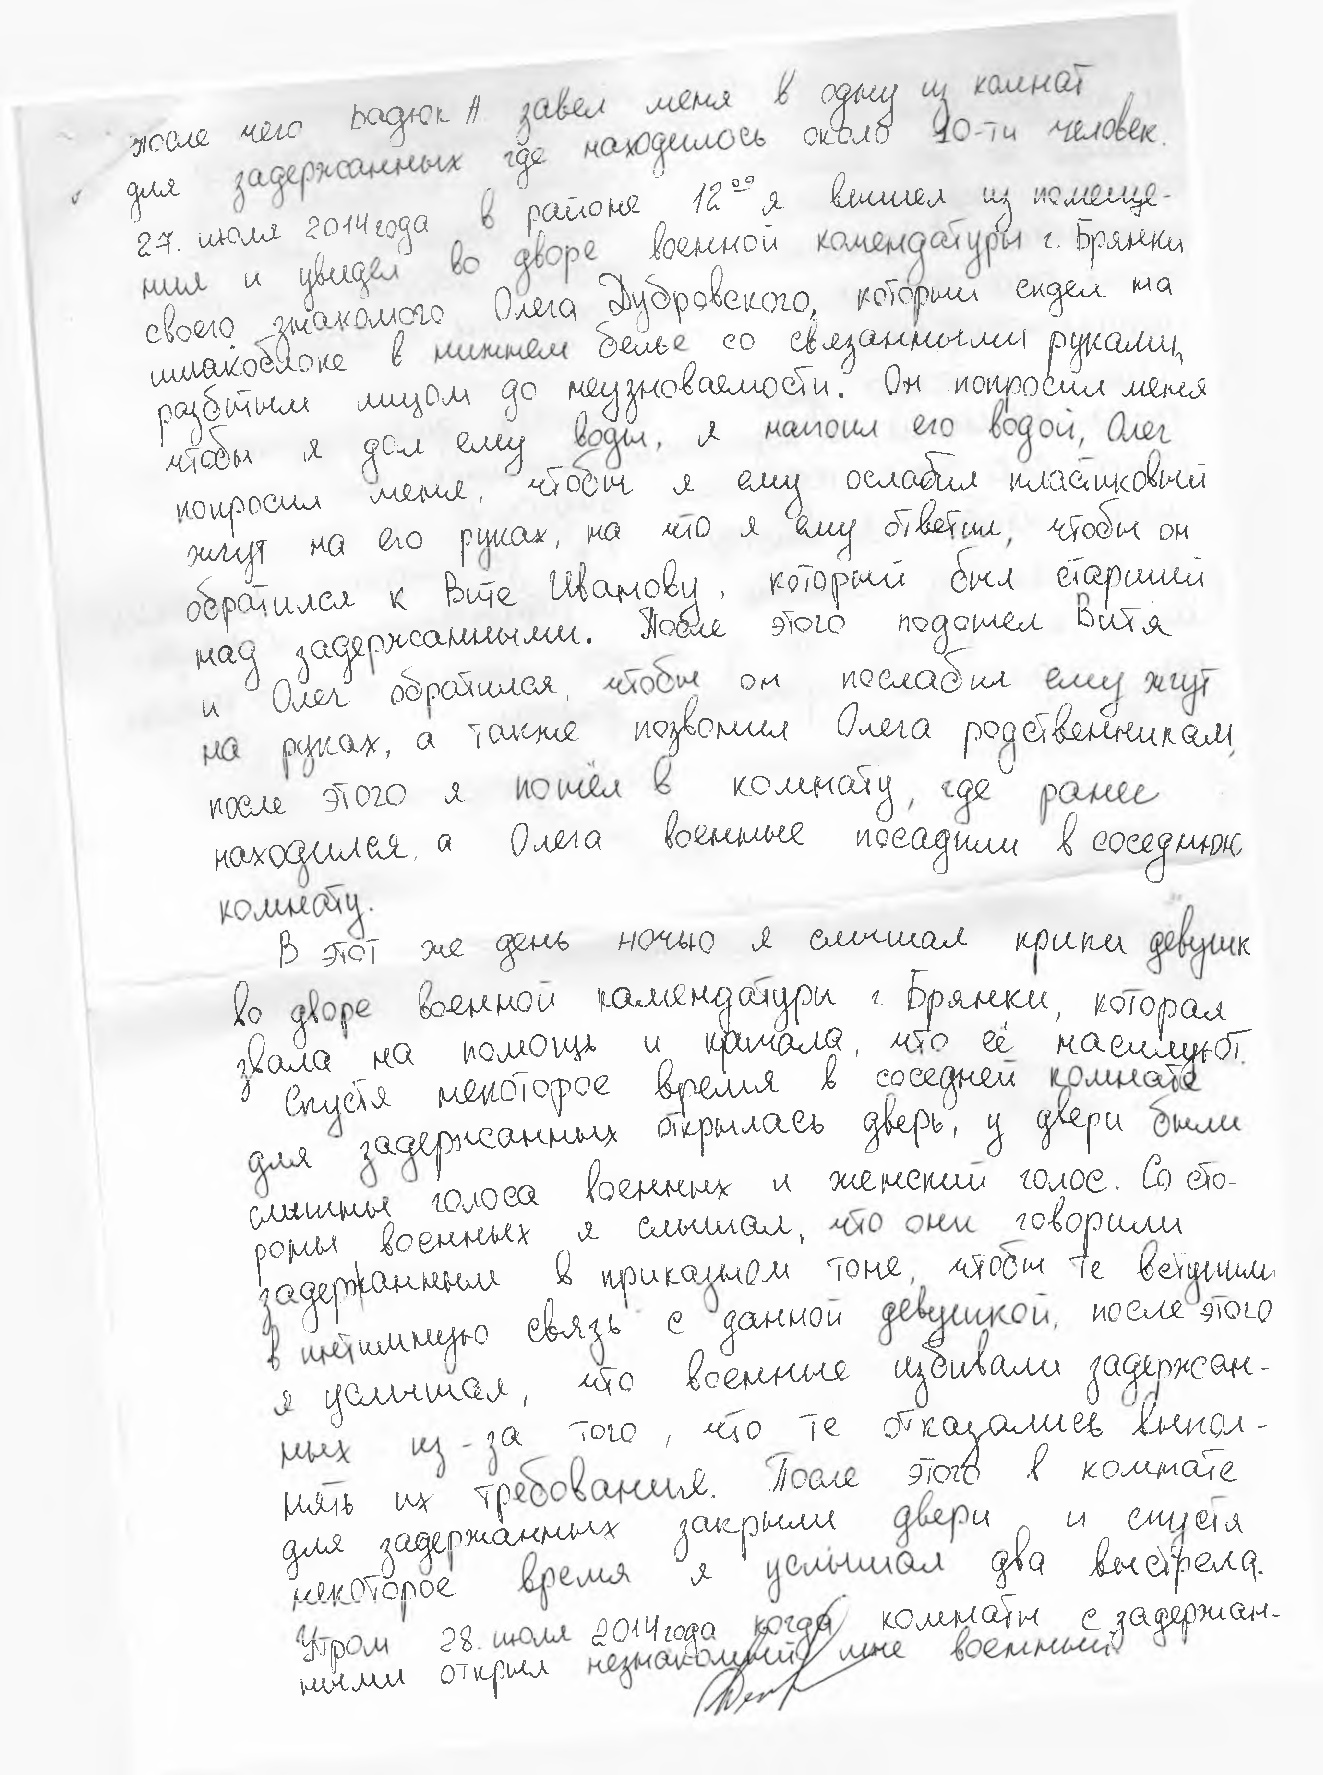 после чего Бадюк А завел меня в одну из комнат
для задержанных где находилось около 10-ти человек.
27. июля 2014 года в районе 12⁰⁰ я вышел из помеще-
ния и увидел во дворе военной комендатуры г. Брянки
своего знакомого Олега Дубровского, который сидел на
шлакоблоке в нижнем белье со связанными руками,
разбитым лицом до неузноваемости. Он попросил меня
чтобы я дал ему воды, я напоил его водой, Олег
попросил меня, чтобы я ему ослабил пластиковый
жгут на его руках, на что я ему ответил, чтобы он
обратился к Вите Иванову, который был старший
над задержанными. После этого подошел Витя
и Олег обратился, чтобы он послабил ему жгут
на руках, а также позвонил Олега родственникам,
после этого я пошёл в комнату, где ранее
находился, а Олега военные посадили в соседнюю
комнату.
В этот же день ночью я слышал крики девушк
во дворе военной камендатуры г. Брянки, которая
звала на помощь и кричала, что её насилуют.
Спустя некоторое время в соседней комнате
для задержанных открылась дверь, у двери были
слышны голоса военных и женский голос. Со сто-
роны военных я слышал, что они говорили
задержанным в приказном тоне, чтобы те вступили
в интимную связь с данной девушкой, после этого
я услышал, что военные избивали задержан-
ных из-за того, что те отказались выпол-
нять их требования. После этого в комнате
для задержанных закрыли двери и спустя
некоторое время я услышал два выстрела.
Утром 28. июля 2014 года когда комнаты с задержан-
ными открыл незнакомый мне военный